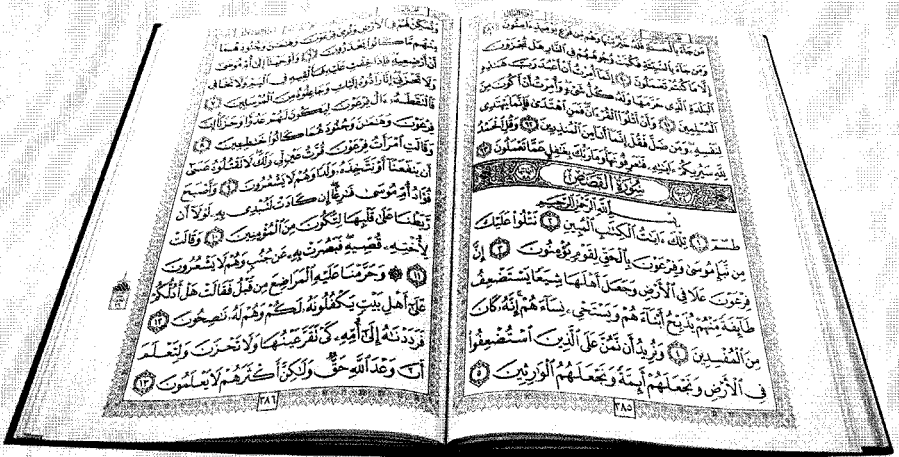 مَن جَآءَ بِٱلْحَسَنَةِ فَلَهُۥ خَيْرٌ مِّنْهَا وَهُم مِّن فَزَعٍ يَوْمَئِذٍ ءَامِنُونَ ٨٩
وَمَن جَآءَ بِٱلسَّيِّئَةِ فَكُبَّتْ وُجُوهُهُمْ فِى ٱلنَّارِ هَلْ تُجْزَوْنَ
إِلَّا مَا كُنتُمْ تَعْمَلُونَ ٩٠ إِنَّمَآ أُمِرْتُ أَنْ أَعْبُدَ رَبَّ هَٰذِهِ
ٱلْبَلْدَةِ ٱلَّذِى حَرَّمَهَا وَلَهُۥ كُلُّ شَىْءٍ وَأُمِرْتُ أَنْ أَكُونَ مِنَ
ٱلْمُسْلِمِينَ ٩١ وَأَنْ أَتْلُوَا۟ ٱلْقُرْءَانَ فَمَنِ ٱهْتَدَىٰ فَإِنَّمَا يَهْتَدِى
لِنَفْسِهِۦ وَمَن ضَلَّ فَقُلْ إِنَّمَآ أَنَا۠ مِنَ ٱلْمُنذِرِينَ ٩٢ وَقُلِ ٱلْحَمْدُ
لِلَّهِ سَيُرِيكُمْ ءَايَٰتِهِۦ فَتَعْرِفُونَهَا وَمَا رَبُّكَ بِغَٰفِلٍ عَمَّا تَعْمَلُونَ ٩٣
سُورَةُ ٱلْقَصَصِ
بِسْمِ ٱللَّهِ ٱلرَّحْمَٰنِ ٱلرَّحِيمِ
طسٓمٓ ١ تِلْكَ ءَايَٰتُ ٱلْكِتَٰبِ ٱلْمُبِينِ ٢ نَتْلُوا۟ عَلَيْكَ
مِن نَّبَإِ مُوسَىٰ وَفِرْعَوْنَ بِٱلْحَقِّ لِقَوْمٍ يُؤْمِنُونَ ٣ إِنَّ
فِرْعَوْنَ عَلَا فِى ٱلْأَرْضِ وَجَعَلَ أَهْلَهَا شِيَعًا يَسْتَضْعِفُ
طَآئِفَةً مِّنْهُمْ يُذَبِّحُ أَبْنَآءَهُمْ وَيَسْتَحْىِۦ نِسَآءَهُمْ إِنَّهُۥ كَانَ
مِنَ ٱلْمُفْسِدِينَ ٤ وَنُرِيدُ أَن نَّمُنَّ عَلَى ٱلَّذِينَ ٱسْتُضْعِفُوا۟
فِى ٱلْأَرْضِ وَنَجْعَلَهُمْ أَئِمَّةً وَنَجْعَلَهُمُ ٱلْوَٰرِثِينَ ٥
٣٨٥
وَنُمَكِّنَ لَهُمْ فِى ٱلْأَرْضِ وَنُرِىَ فِرْعَوْنَ وَهَٰمَٰنَ وَجُنُودَهُمَا
مِنْهُم مَّا كَانُوا۟ يَحْذَرُونَ ٦ وَأَوْحَيْنَآ إِلَىٰٓ أُمِّ مُوسَىٰٓ
أَنْ أَرْضِعِيهِ فَإِذَا خِفْتِ عَلَيْهِ فَأَلْقِيهِ فِى ٱلْيَمِّ وَلَا تَخَافِى
وَلَا تَحْزَنِىٓ إِنَّا رَآدُّوهُ إِلَيْكِ وَجَاعِلُوهُ مِنَ ٱلْمُرْسَلِينَ ٧
فَٱلْتَقَطَهُۥٓ ءَالُ فِرْعَوْنَ لِيَكُونَ لَهُمْ عَدُوًّا وَحَزَنًا إِنَّ
فِرْعَوْنَ وَهَٰمَٰنَ وَجُنُودَهُمَا كَانُوا۟ خَٰطِـِٔينَ ٨
وَقَالَتِ ٱمْرَأَتُ فِرْعَوْنَ قُرَّتُ عَيْنٍ لِّى وَلَكَ لَا تَقْتُلُوهُ عَسَىٰٓ
أَن يَنفَعَنَآ أَوْ نَتَّخِذَهُۥ وَلَدًا وَهُمْ لَا يَشْعُرُونَ ٩ وَأَصْبَحَ
فُؤَادُ أُمِّ مُوسَىٰ فَٰرِغًا إِن كَادَتْ لَتُبْدِى بِهِۦ لَوْلَآ أَن
رَّبَطْنَا عَلَىٰ قَلْبِهَا لِتَكُونَ مِنَ ٱلْمُؤْمِنِينَ ١٠ وَقَالَتْ
لِأُخْتِهِۦ قُصِّيهِ فَبَصُرَتْ بِهِۦ عَن جُنُبٍ وَهُمْ لَا يَشْعُرُونَ
١١ ۞ وَحَرَّمْنَا عَلَيْهِ ٱلْمَرَاضِعَ مِن قَبْلُ فَقَالَتْ هَلْ أَدُلُّكُمْ
عَلَىٰٓ أَهْلِ بَيْتٍ يَكْفُلُونَهُۥ لَكُمْ وَهُمْ لَهُۥ نَٰصِحُونَ ١٢
فَرَدَدْنَٰهُ إِلَىٰٓ أُمِّهِۦ كَىْ تَقَرَّ عَيْنُهَا وَلَا تَحْزَنَ وَلِتَعْلَمَ
أَنَّ وَعْدَ ٱللَّهِ حَقٌّ وَلَٰكِنَّ أَكْثَرَهُمْ لَا يَعْلَمُونَ ١٣
٣٨٦